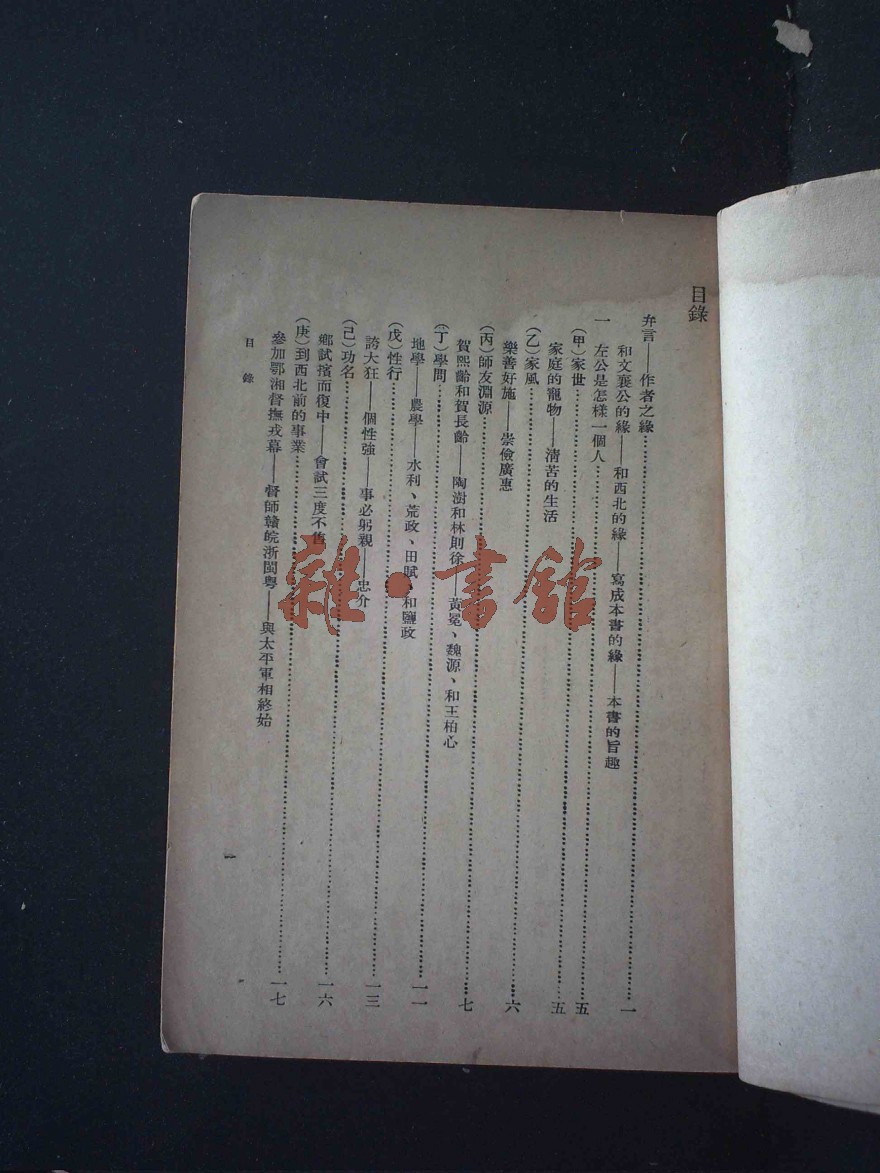 目錄
弁言——作者之緣……一
和文襄公的緣——和西北的緣——寫成本書的緣——本書的旨趣
一 左公是怎樣一個人……五
(甲)家世……五
家庭的寵物——清苦的生活
(乙)家風……六
樂善好施——崇儉廣惠
(丙)師友淵源……七
賀熙齡和賀長齡——陶澍和林則徐——黃冕、魏源、和王柏心
(丁)學問……一一
地學——農學——水利、荒政、田賦、和鹽政
(戊)性行……一三
誇大狂——個性強——事必躬親——忠介
(己)功名……一六
鄉試擯而復中——會試三度不售
(庚)到西北前的事業……一七
參加鄂湘督撫戎幕——督師贛皖浙閩粵——與太平軍相終始
目錄
一
雜·書館